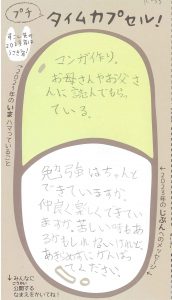 プチ
タイムカプセル！
「2021年のいまハマっていること」
マンガ作り。
お母さんやお父さ
んに読んでもらっ
ている。
←2023年のじぶんへのメッセージ
勉強はちゃんと
できていますか。
仲良く楽しくできてい
ますか。苦しい時も
あるかもしれないけれど、
あきらめずにがんばっ
てください。
↓みんなに
公開する
なまえをかいてね！